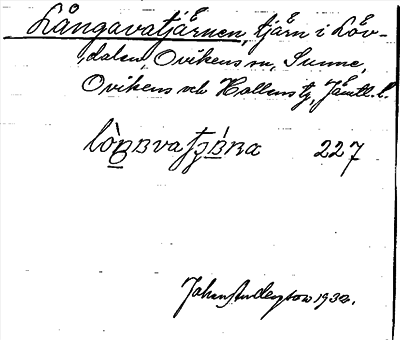 Långavatjärnen, tjärn i Löv-
dalen, Ovikens sn, Sunne,
Ovikens och Hallens tg, Jämtl. l.
227
Johan Anderson 1932.